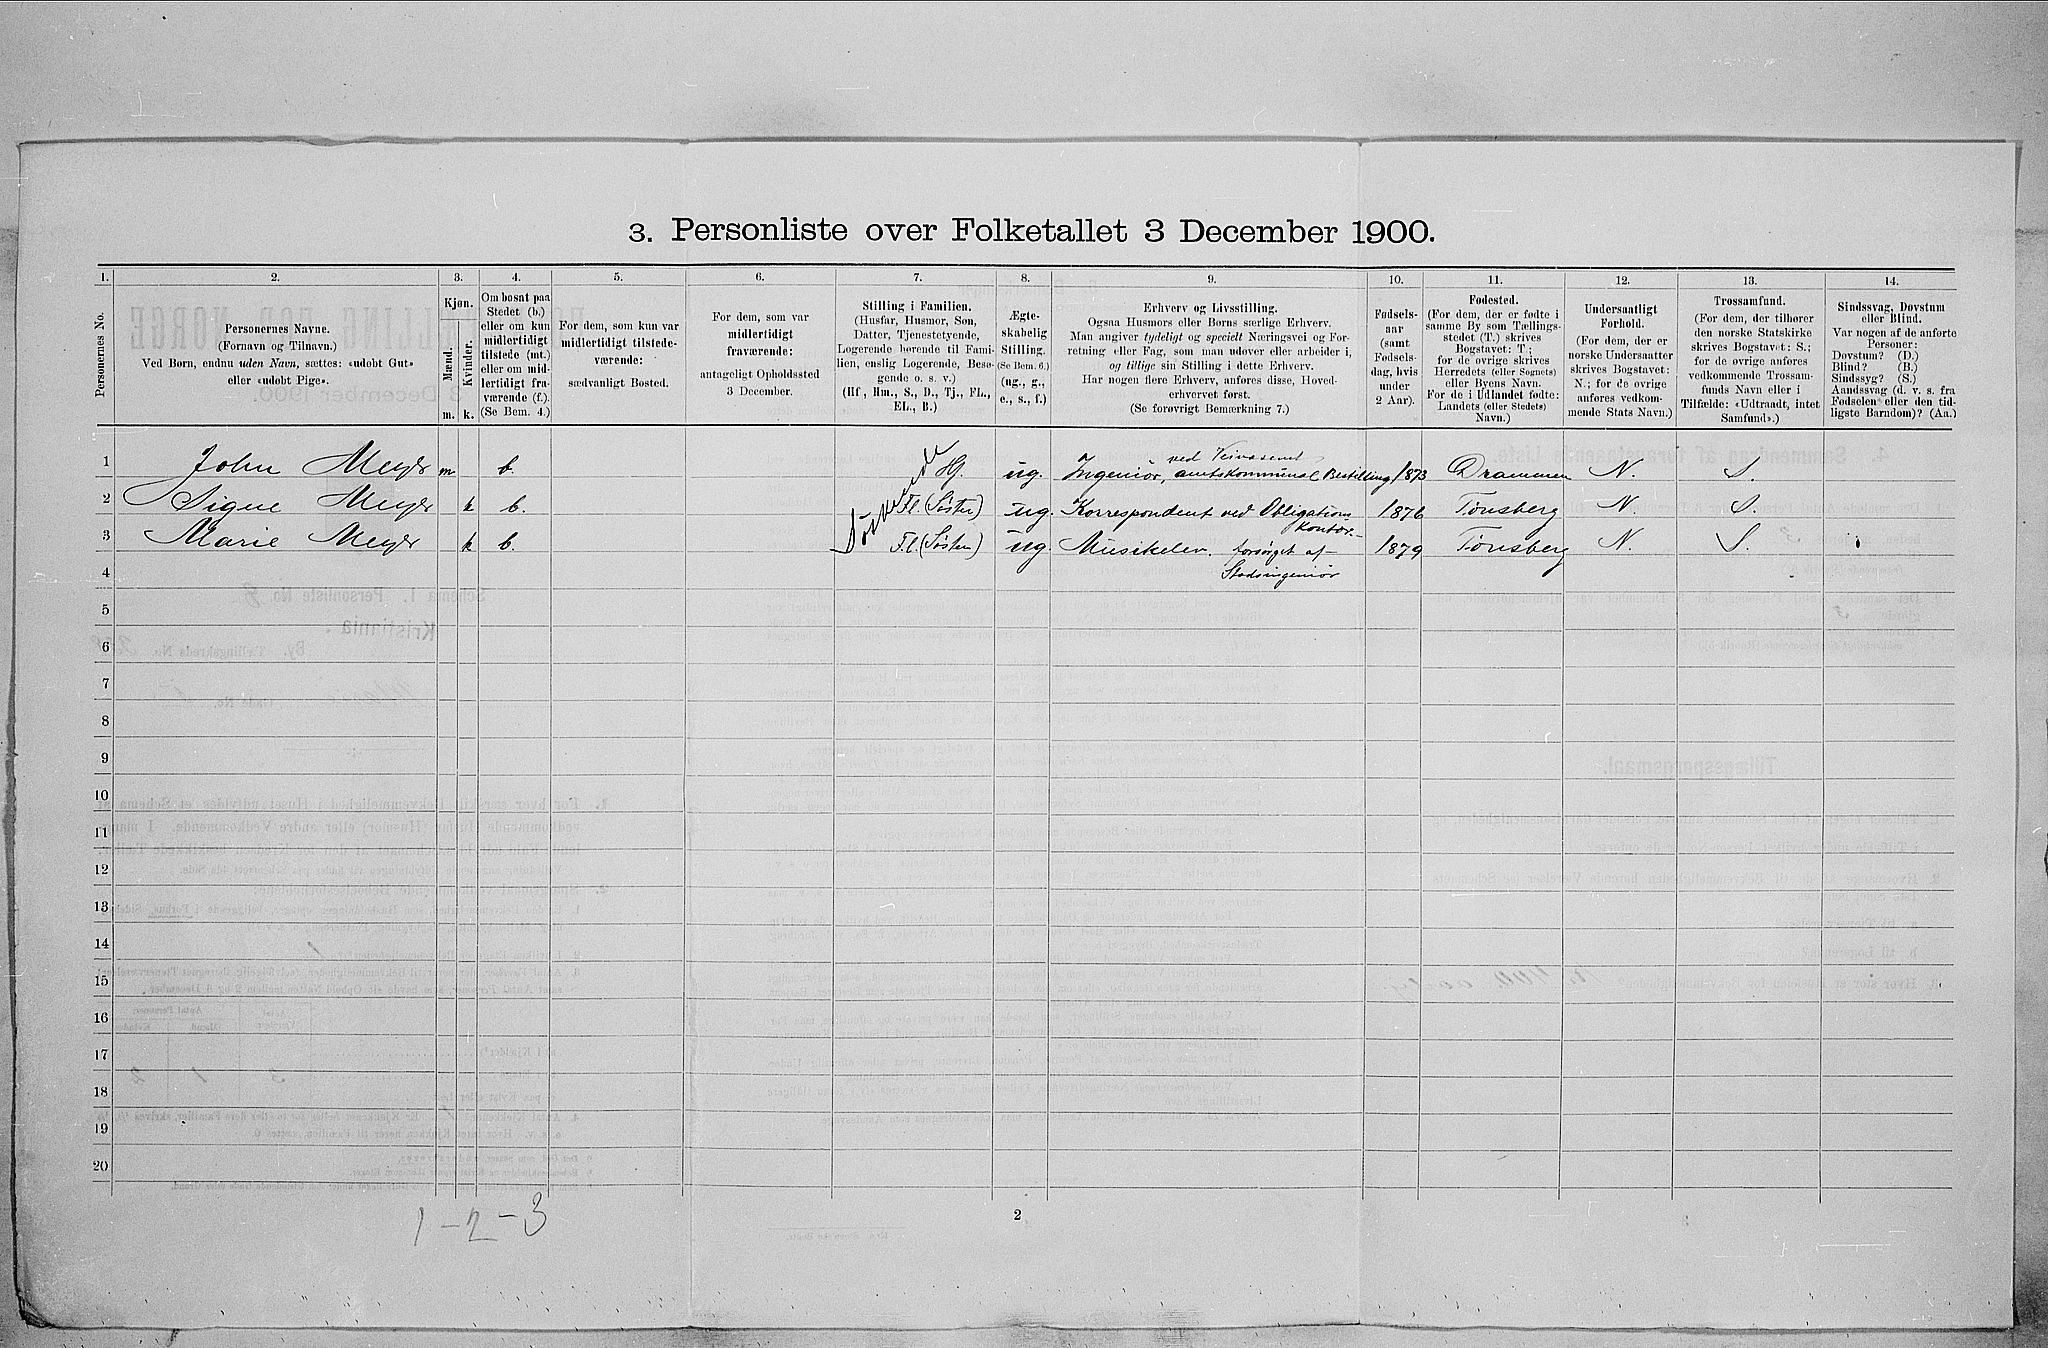 3. Personliste over Folketallet 3 December 1900.
1. 2. 3. 4. 5. 6. 7. 8. 9. 10. 11. 12. 13. 14.
Personernes No.
Personernes Navne.
(Fornavn og Tilnavn.)
Ved Børn, endnu uden Navn, sættes: «udøbt Gut»
eller «udøbt Pige».
Kjøn.
Mænd.
Kvinder.
m. k.
Om bosat paa
Stedet (b.)
eller om kun
midlertidigt
tilstede (mt.)
eller om mid-
lertidigt fra-
værende (f.)
(Se Bem. 4.)
For dem, som kun var
midlertidigt tilstede-
værende:
sædvanligt Bosted.
For dem, som var
midlertidigt
fraværende:
antageligt Opholdssted
3 December.
Stilling i Familien.
(Husfar, Husmor, Søn,
Datter, Tjenestetyende,
Logerende hørende til Fami-
lien, enslig Logerende, Besø-
gende o. s. v.)
(Hf, Hm., S., D., Tj., FL.,
EL., B.)
Ægte-
skabelig
Stilling.
(Se Bem. 6.)
(ug., g.,
e., s., f.)
Erhverv og Livsstilling.
Ogsaa Husmors eller Børns særlige Erhverv.
Man angiver tydeligt og specielt Næringsvei og For-
retning eller Fag, som man udøver eller arbeider i,
og tillige sin Stilling i dette Erhverv.
Har nogen flere Erhverv, anføres disse, Hoved-
erhvervet først.
(Se forøvrigt Bemærkning 7.)
Fødsels-
aar
(samt
Fødsels-
dag, hvis
under
2 Aar).
Fødested.
(For dem, der er fødte i
samme By som Tællings-
stedet (T.) skrives
Bogstavet: T.;
for de øvrige skrives
Herredets (eller Sognets)
eller Byens Navn.
For de i Udlandet fødte:
Landets (eller Stedets)
Navn.)
Undersaatligt
Forhold.
(For dem, der er
norske Undersaatter
skrives Bogstavet:
N.; for de øvrige
anføres vedkom-
mende Stats Navn.)
Trossamfund.
(For dem, der tilhører
den norske Statskirke
skrives Bogstavet: S.;
for de øvrige anføres
vedkommende Trossam-
funds Navn eller i
Tilfælde: «Udtraadt, intet
Samfund».)
Sindssvag, Døvstum
eller Blind.
Var nogen af de anførte
Personer:
Døvstum? (D.)
Blind? (B.)
Sindssyg? (S.)
Aandssvag (d. v. s. fra
Fødselen eller den tid-
ligste Barndom)? (Aa.)
Søskende
ved Veivæsenet
1 John Meyer m b. Hf. ug. Ingeniør, amtskommunal Bestilling 1873 Drammen N. S.
2 Signe Meyer k b. Fl. (Søster) ug. Korrespondent ved Obligations 1876 Tønsberg N. S.
kontor.
3 Marie Meyer k b. Fl. (Søster) ug. Musikelev. forsørget af 1879 Tønsberg N. S.
Stadsingeniør
4
5
6
7
8
9
10
11
12
13
14
15
16
17
18
19
20
1 – 2 – 3
2